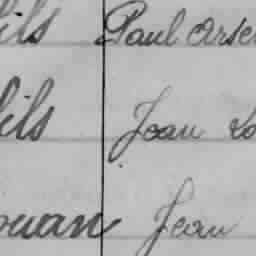 fils Paul Arse
fils Jean Lo
ouan Jean